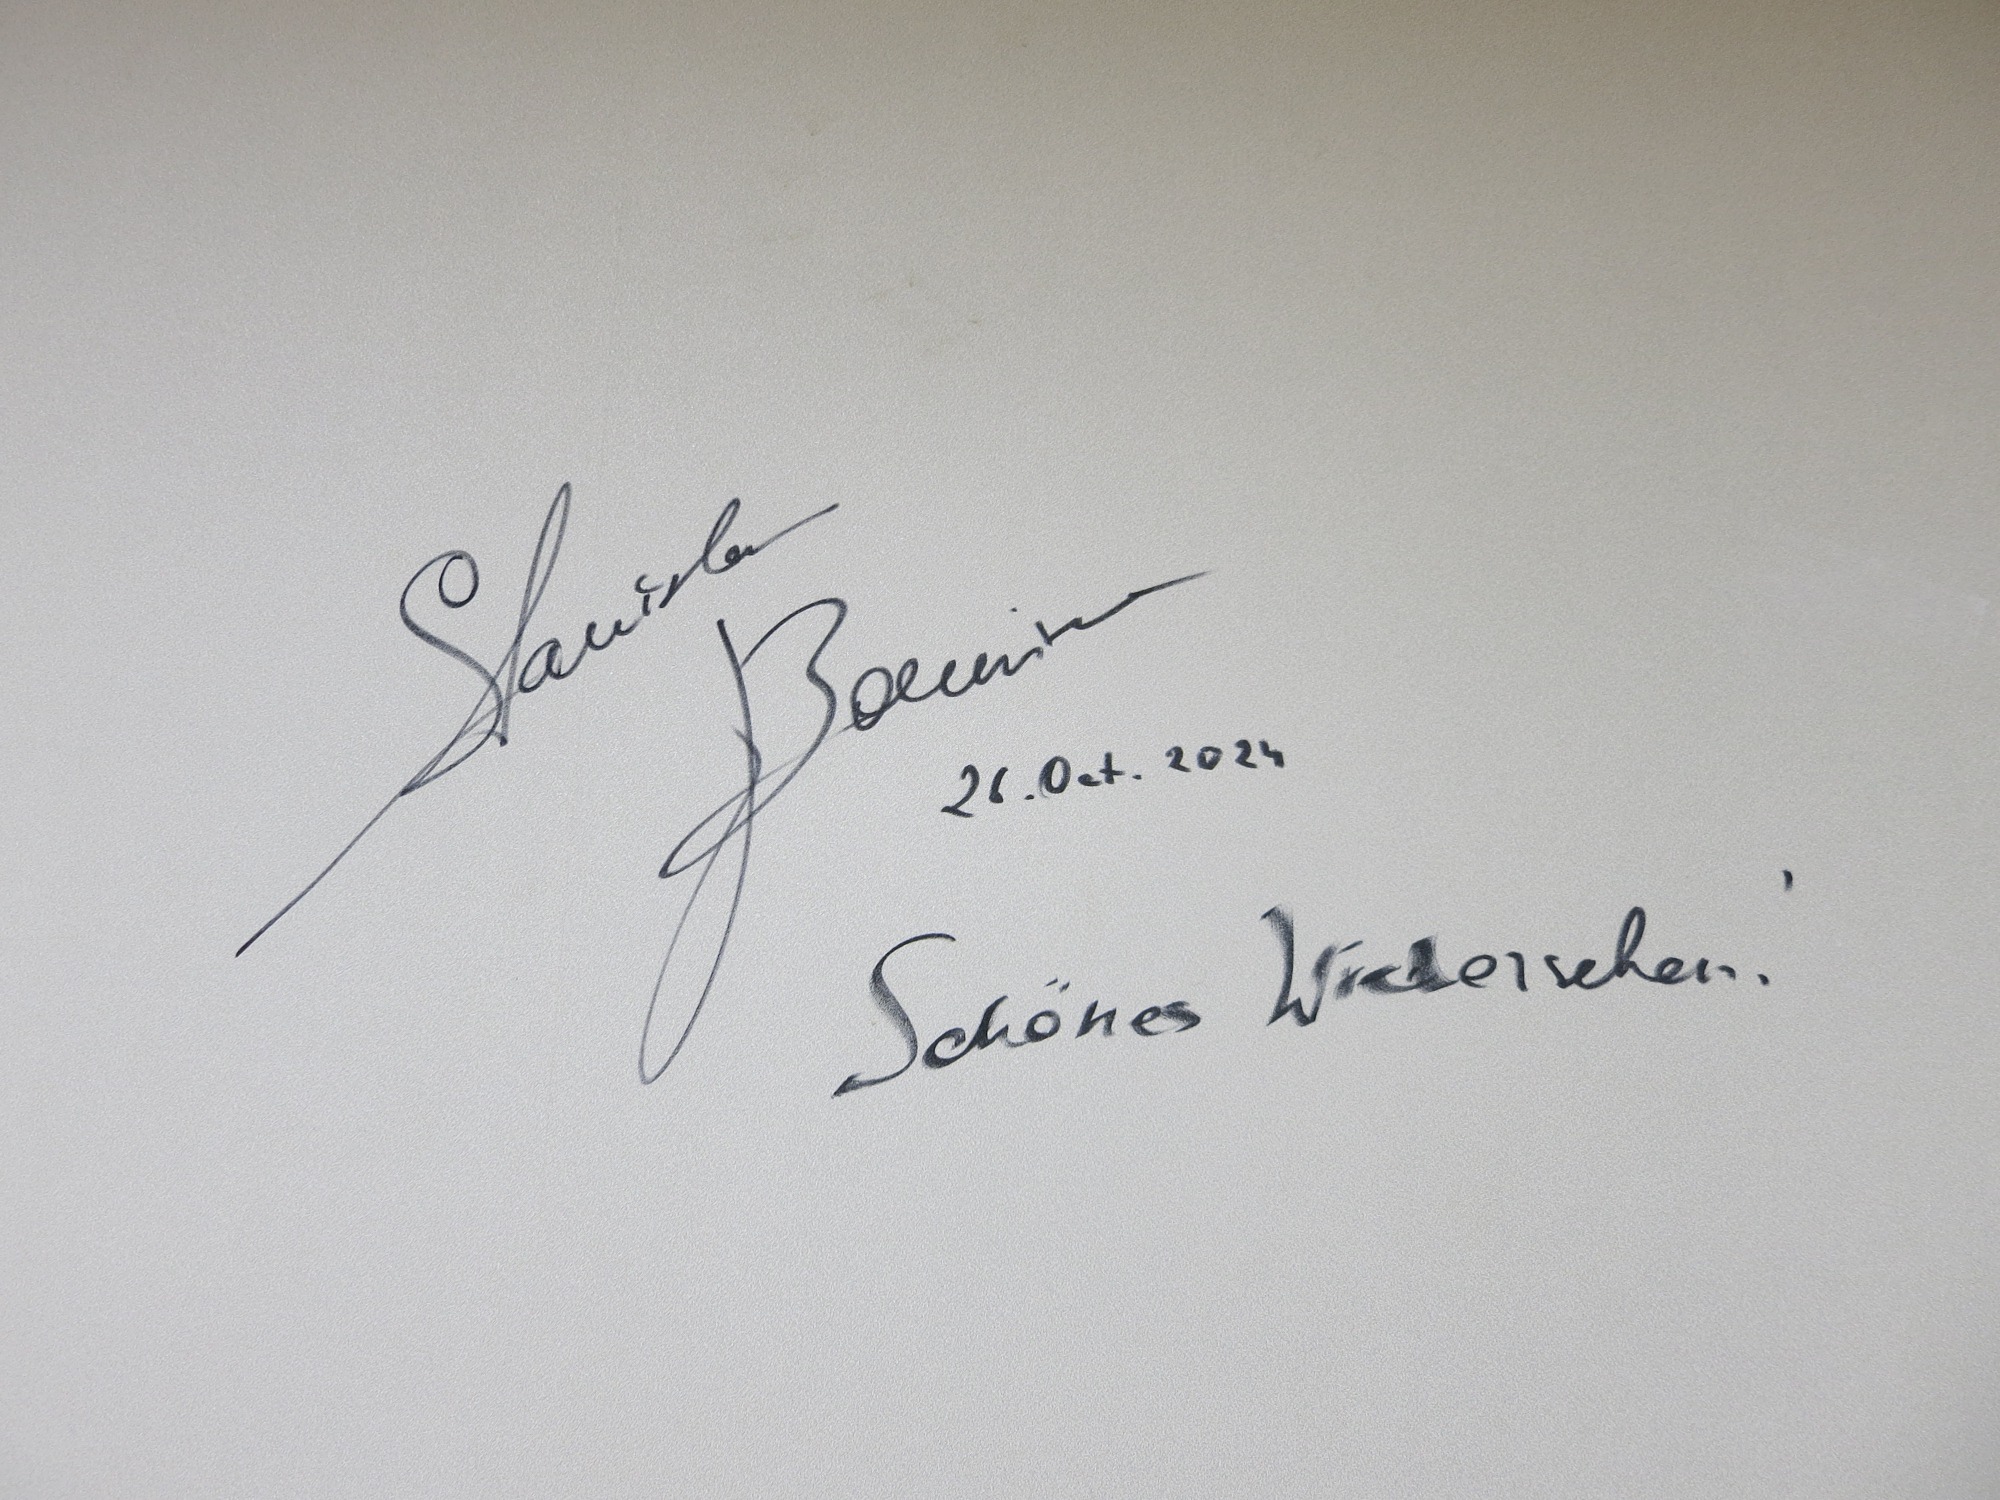 Stanislav
26. Oct. 2024
Schönes Wiedersehen!